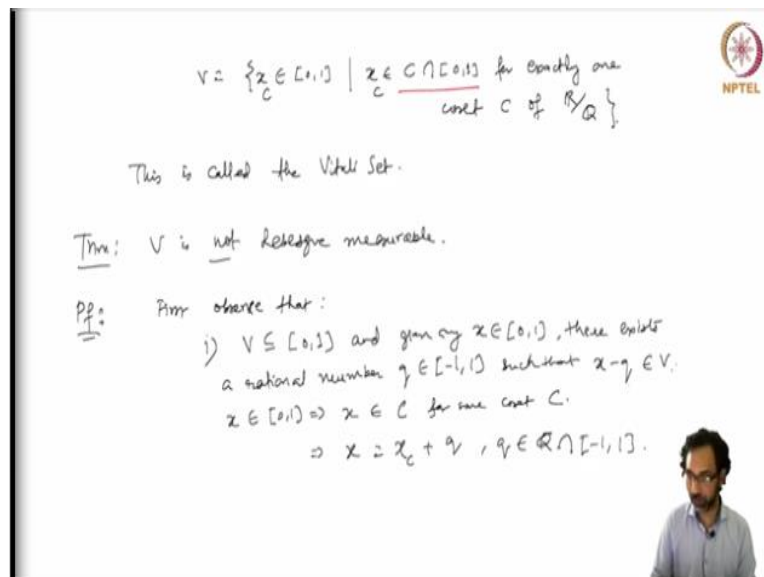 V = {x_C ∈ [0,1] | x_C ∈ C ∩ [0,1] for exactly one
coset C of ℝ/ℚ}.
NPTEL
This is called the Vitali Set.
Thm: V is not Lebesgue measurable.
Pf: First observe that:
i) V ⊆ [0,1] and given any x ∈ [0,1], there exists
a rational number q ∈ [-1,1] such that x-q ∈ V.
x ∈ [0,1] ⇒ x ∈ C for some coset C.
⇒ x = x_C + q, q ∈ ℚ ∩ [-1,1].